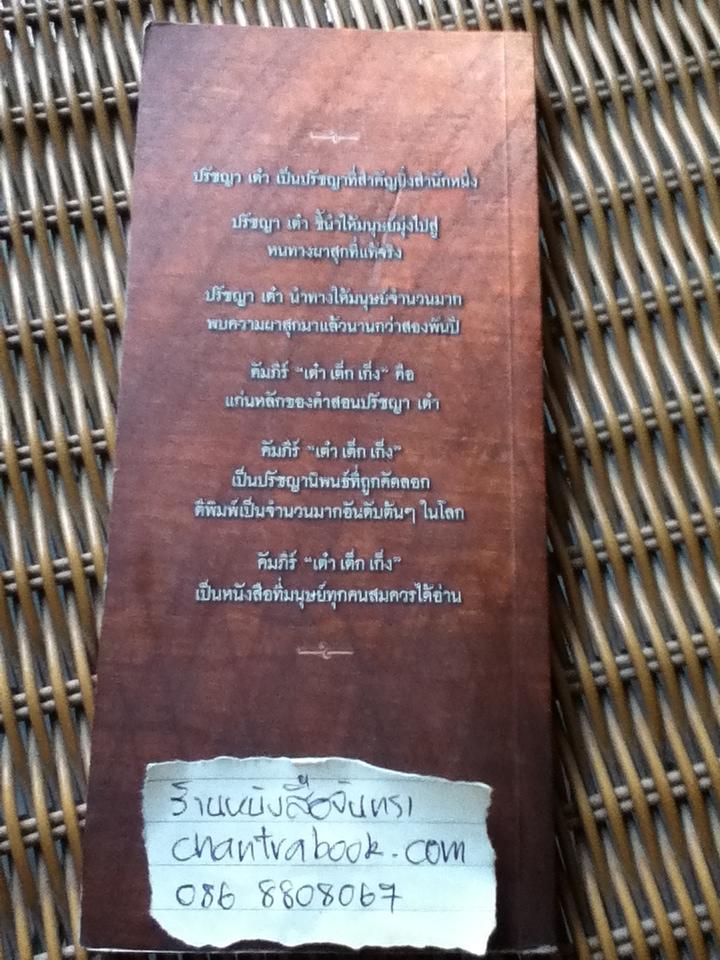 ปรัชญา เต๋า เป็นปรัชญาที่สำคัญยิ่งสำนักหนึ่ง
ปรัชญา เต๋า ชี้นำให้มนุษย์มุ่งไปสู่
หนทางผาสุกที่แท้จริง
ปรัชญา เต๋า นำทางให้มนุษย์จำนวนมาก
พบความผาสุกมาแล้วนานกว่าสองพันปี
คัมภีร์ “เต๋า เต็ก เก็ง” คือ
แก่นหลักของคำสอนปรัชญา เต๋า
คัมภีร์ “เต๋า เต็ก เก็ง”
เป็นปรัชญานิพนธ์ที่ถูกคัดลอก
ตีพิมพ์เป็นจำนวนมากอันดับต้นๆ ในโลก
คัมภีร์ “เต๋า เต็ก เก็ง”
เป็นหนังสือที่มนุษย์ทุกคนสมควรได้อ่าน
ร้านหนังสือจันทรา
chantrabook.com
086 8808067